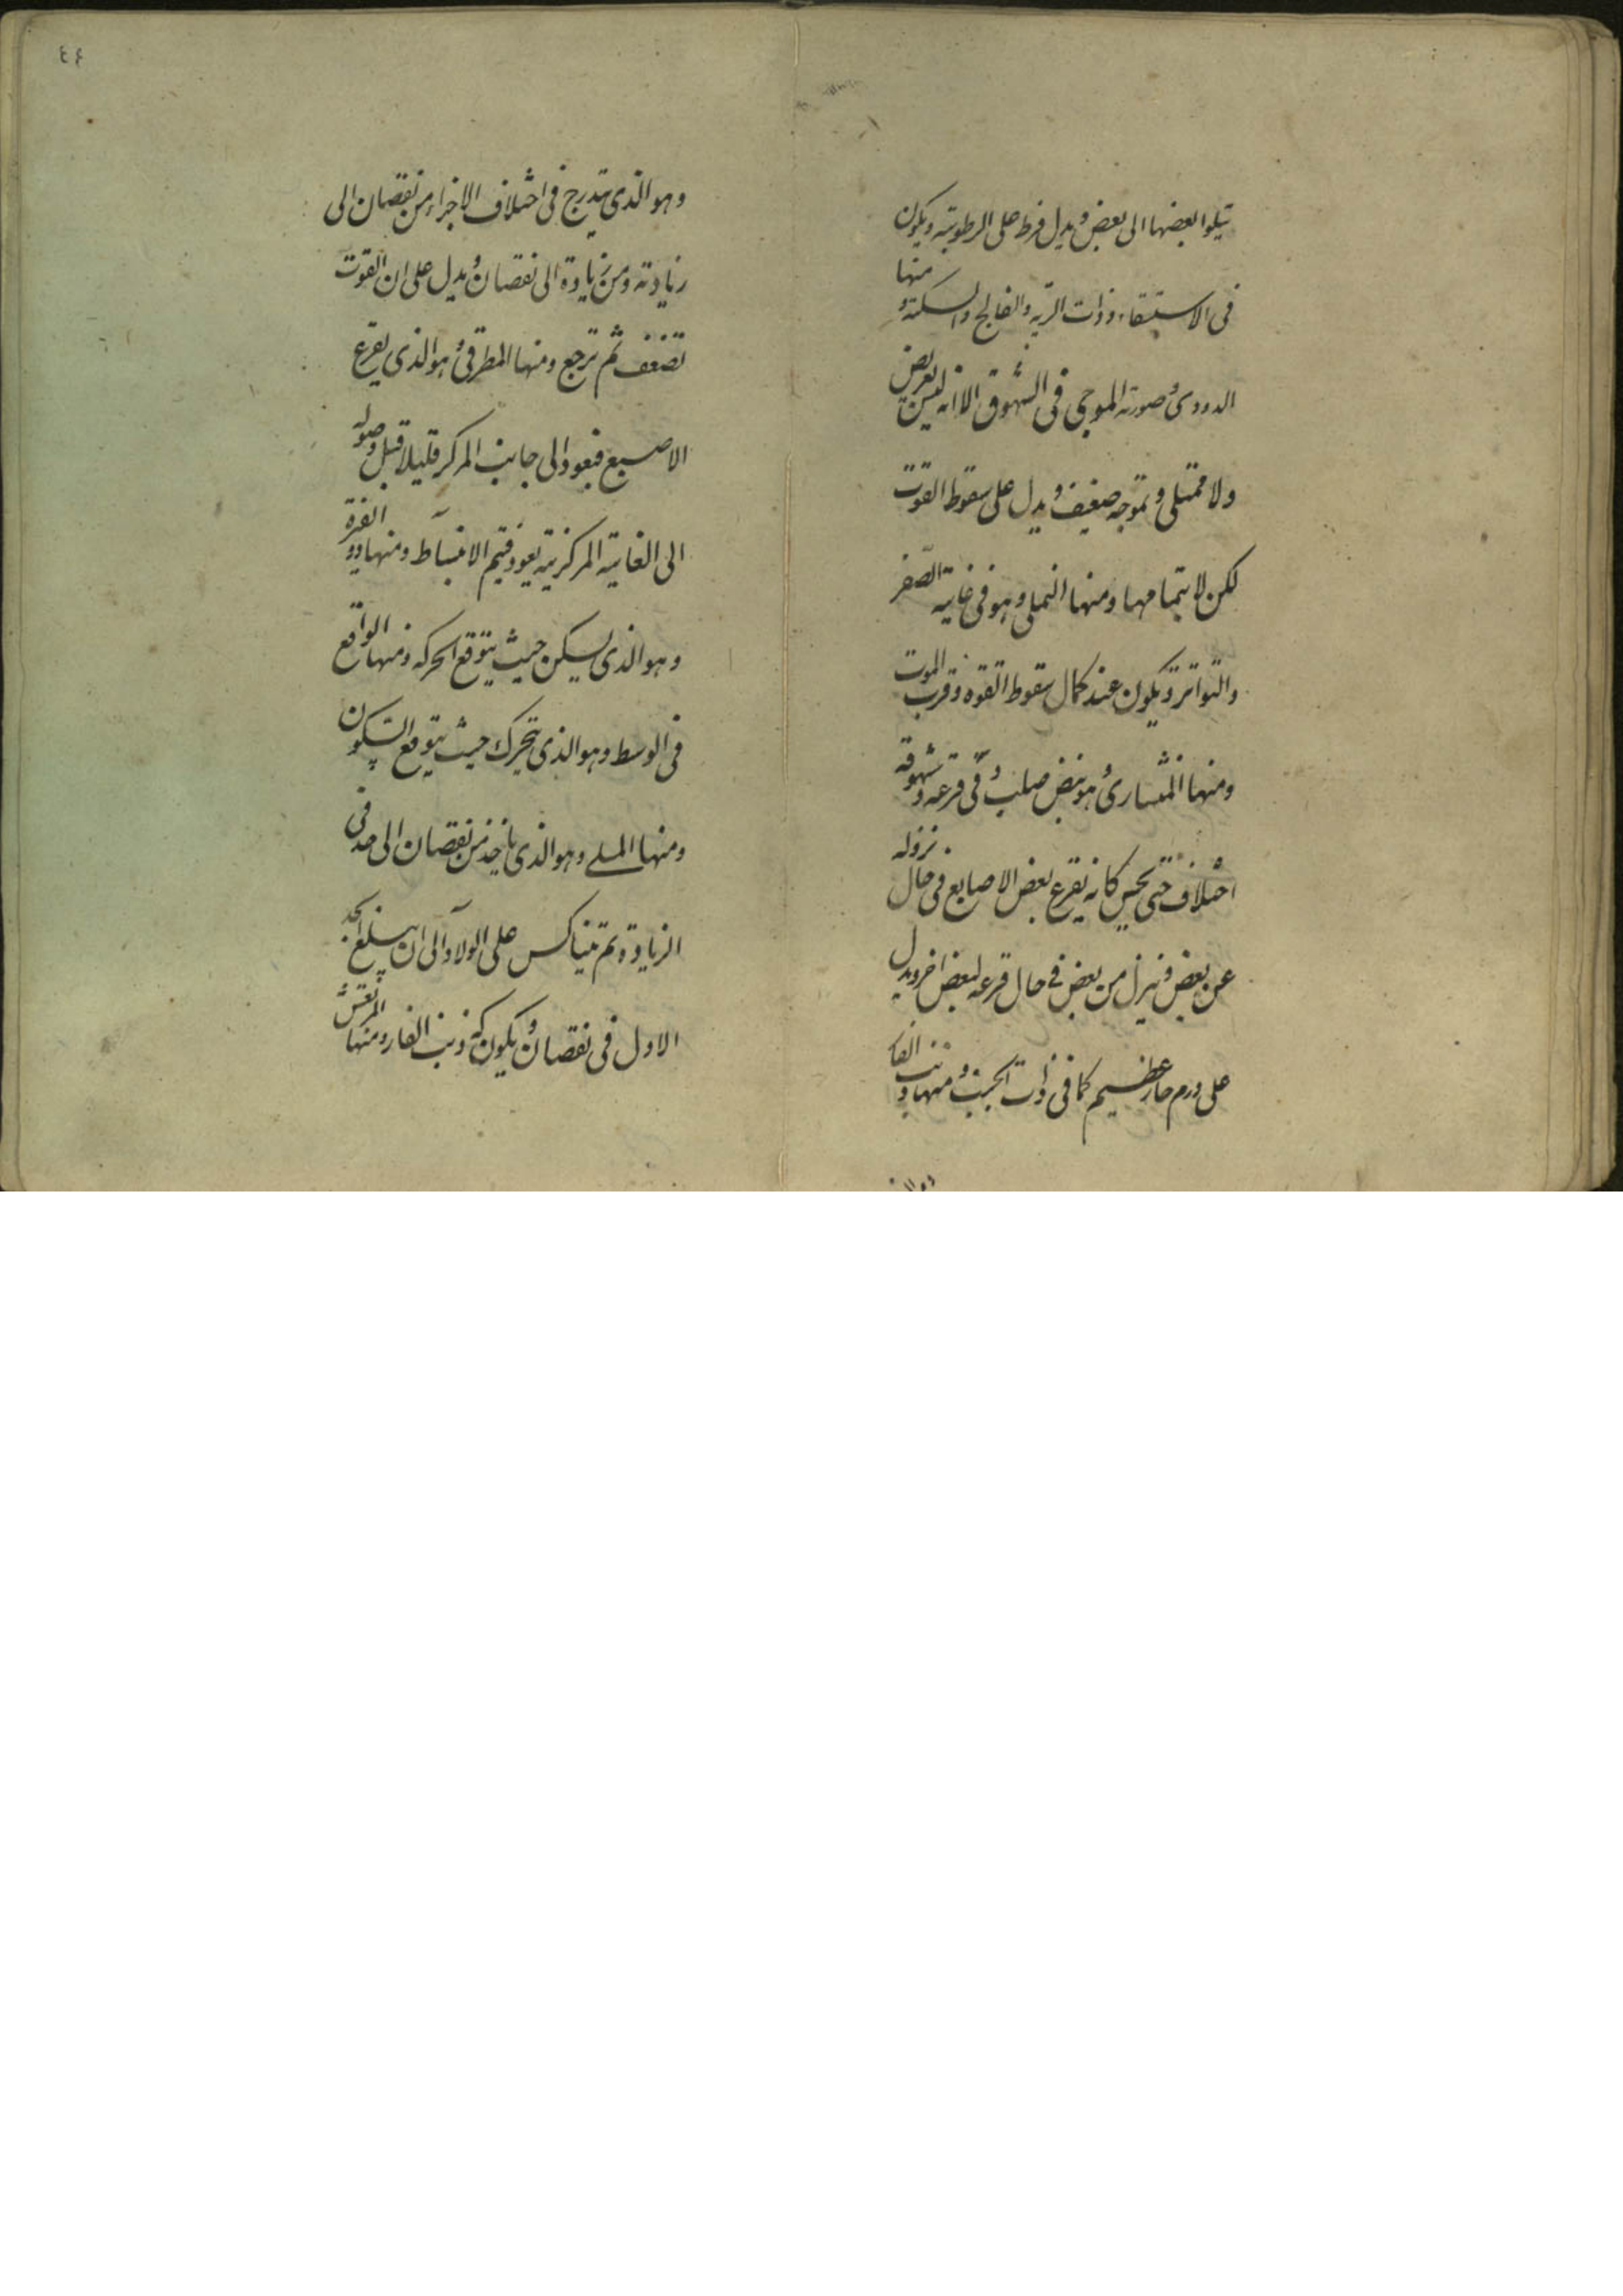 يتلوا بعضها الى بعض ويدل فرط على الرطوبته ويكون
فى الاستسقاء وذات الريه والفالج والسكتة ومنها
الدودى وصورته الموجى فى الشهوق الا انه ليس بعريض
ولا ممتلى وتموجه ضعيف ويدل على سقوط القوت
لكن لا بتمامها ومنها النملى وهو فى غايته الصغر
والتواتر ويكون عند كمال سقوط القوه وقرب الموت
ومنها المنشارى وهو نبض صلب وفى قرعه وشهوقه
اختلاف حتى يحس كانه يقرع بعض الاصابع فى حال نزوله
عن بعض فينزل من بعض فى حال قرعه لبعض اخر ويدل
على ورم حار عظيم كما فى ذات الجنب ومنها ذنب الفا
٤٤
وهو الذى يتدرج فى اختلاف الاجزاء من نقصان الى
زيادته ومن زيادة الى نقصان ويدل على ان القوت
تضعف ثم ترجع ومنها المطرقى وهو الذى يقرع
الاصبع فيعود الى جانب المركز قليلا قبل وصوله
الى الغايته المركزيته يعود فيتم الانبساط ومنها ذو الفترة
وهو الذى يسكن حيث يتوقع الحركه ومنها الواقع
فى الوسط وهو الذى يتحرك حيث يتوقع السكون
ومنها المسلے وهو الذى ياخذ من نقصان الى حد فى
الزيادة ثم يتناكس على الولاء الى ان يبلغ الحد
الاول فى نقصان ويكون كه ذنب الفار ومنها المرتعش